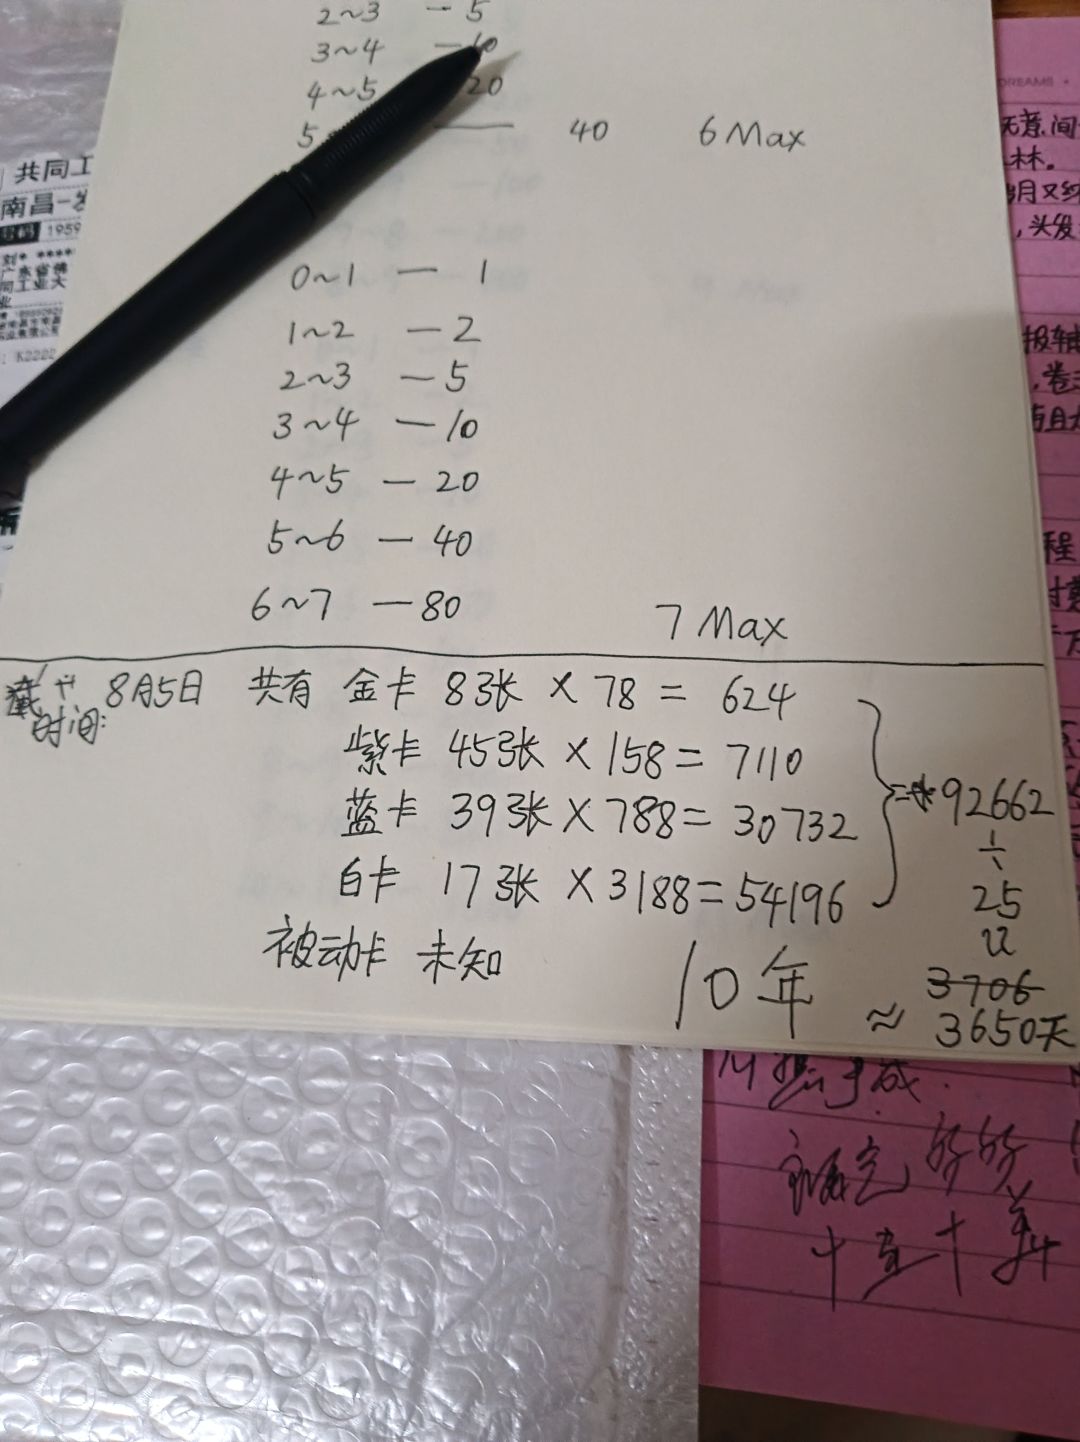 2~3 — 5
3~4 — 10
4~5 20
5 40 6 Max
0~1 — 1
1~2 — 2
2~3 — 5
3~4 — 10
4~5 — 20
5~6 — 40
6~7 — 80
7 Max
截止时间: 8月5日 共有 金卡 8张 × 78 = 624
紫卡 45张 × 158 = 7110
蓝卡 39张 × 788 = 30732
白卡 17张 × 3188 = 54196
= 92662
÷
25
被动卡 未知
3706
10年 ≈ 3650天
共同工
南昌-发
1959
刘* ****
广东省佛
同工业大
业
K2222
DREAMS
无意间
林。
月又经
,头发
报轴
,卷
与且
程
十五十算